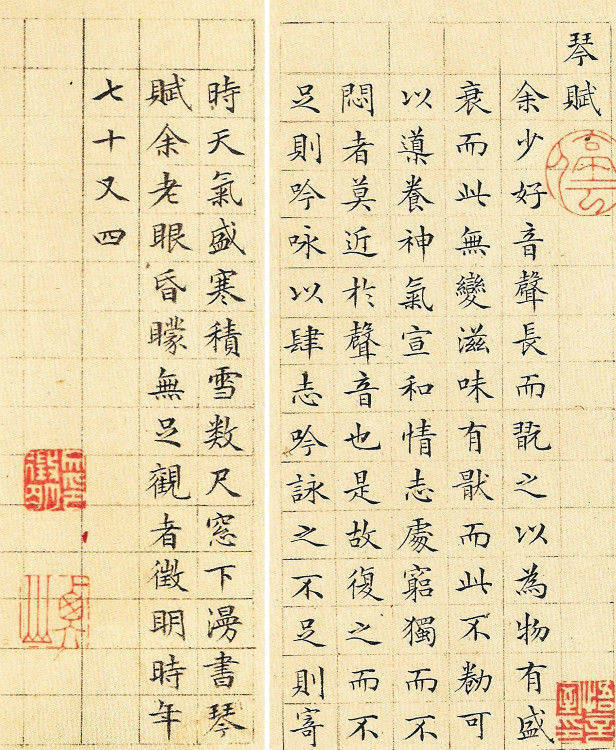 琴賦
停雲
余少好音聲長而翫之以為物有盛
衰而此無變滋味有猒而此不勌可
以導養神氣宣和情志處窮獨而不
悶者莫近於聲音也是故復之而不
足則吟咏以肆志吟詠之不足則寄
悟言室印
時天氣盛寒積雪数尺窓下漫書琴
賦余老眼昏矇無足觀者徵明時年
七十又四